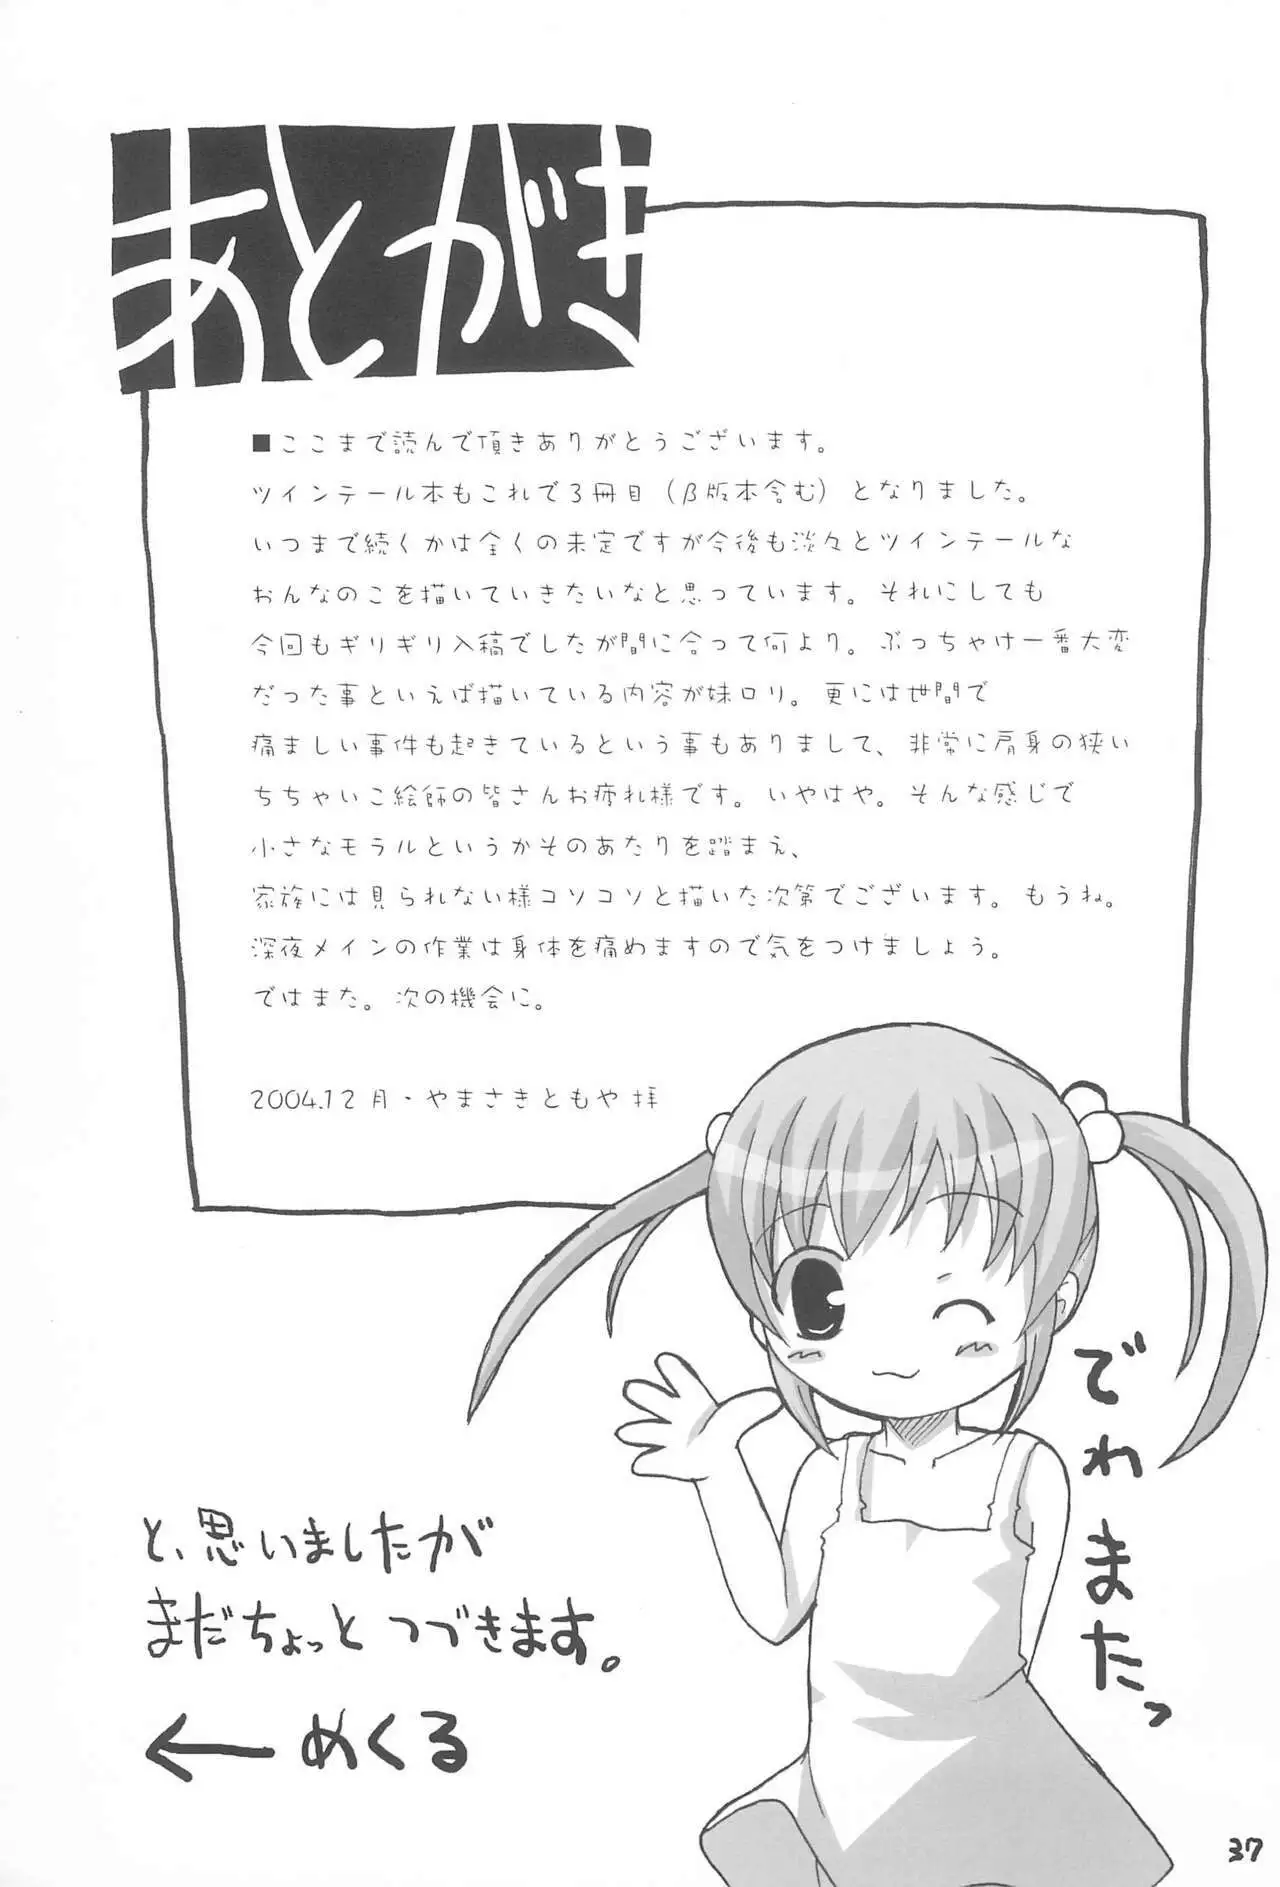 あとがき
■ここまで読んで頂きありがとうございます。
ツインテール本もこれで3冊目（β版本含む）となりました。
いつまで続くかは全くの未定ですが今後も淡々とツインテールな
おんなのこを描いていきたいなと思っています。それにしても
今回もギリギリ入稿でしたが間に合って何より。ぶっちゃけ一番大変
だった事といえば描いている内容が妹ロリ。更には世間で
痛ましい事件も起きているという事もありまして、非常に肩身の狭い
ちちゃいこ絵師の皆さんお疲れ様です。いやはや。そんな感じで
小さなモラルというかそのあたりを踏まえ、
家族には見られない様コソコソと描いた次第でございます。もうね。
深夜メインの作業は身体を痛めますので気をつけましょう。
ではまた。次の機会に。
2004.12月・やまさきともや 拝
でわまたっ
と、思いましたが
まだちょっとつづきます。
←めくる
37